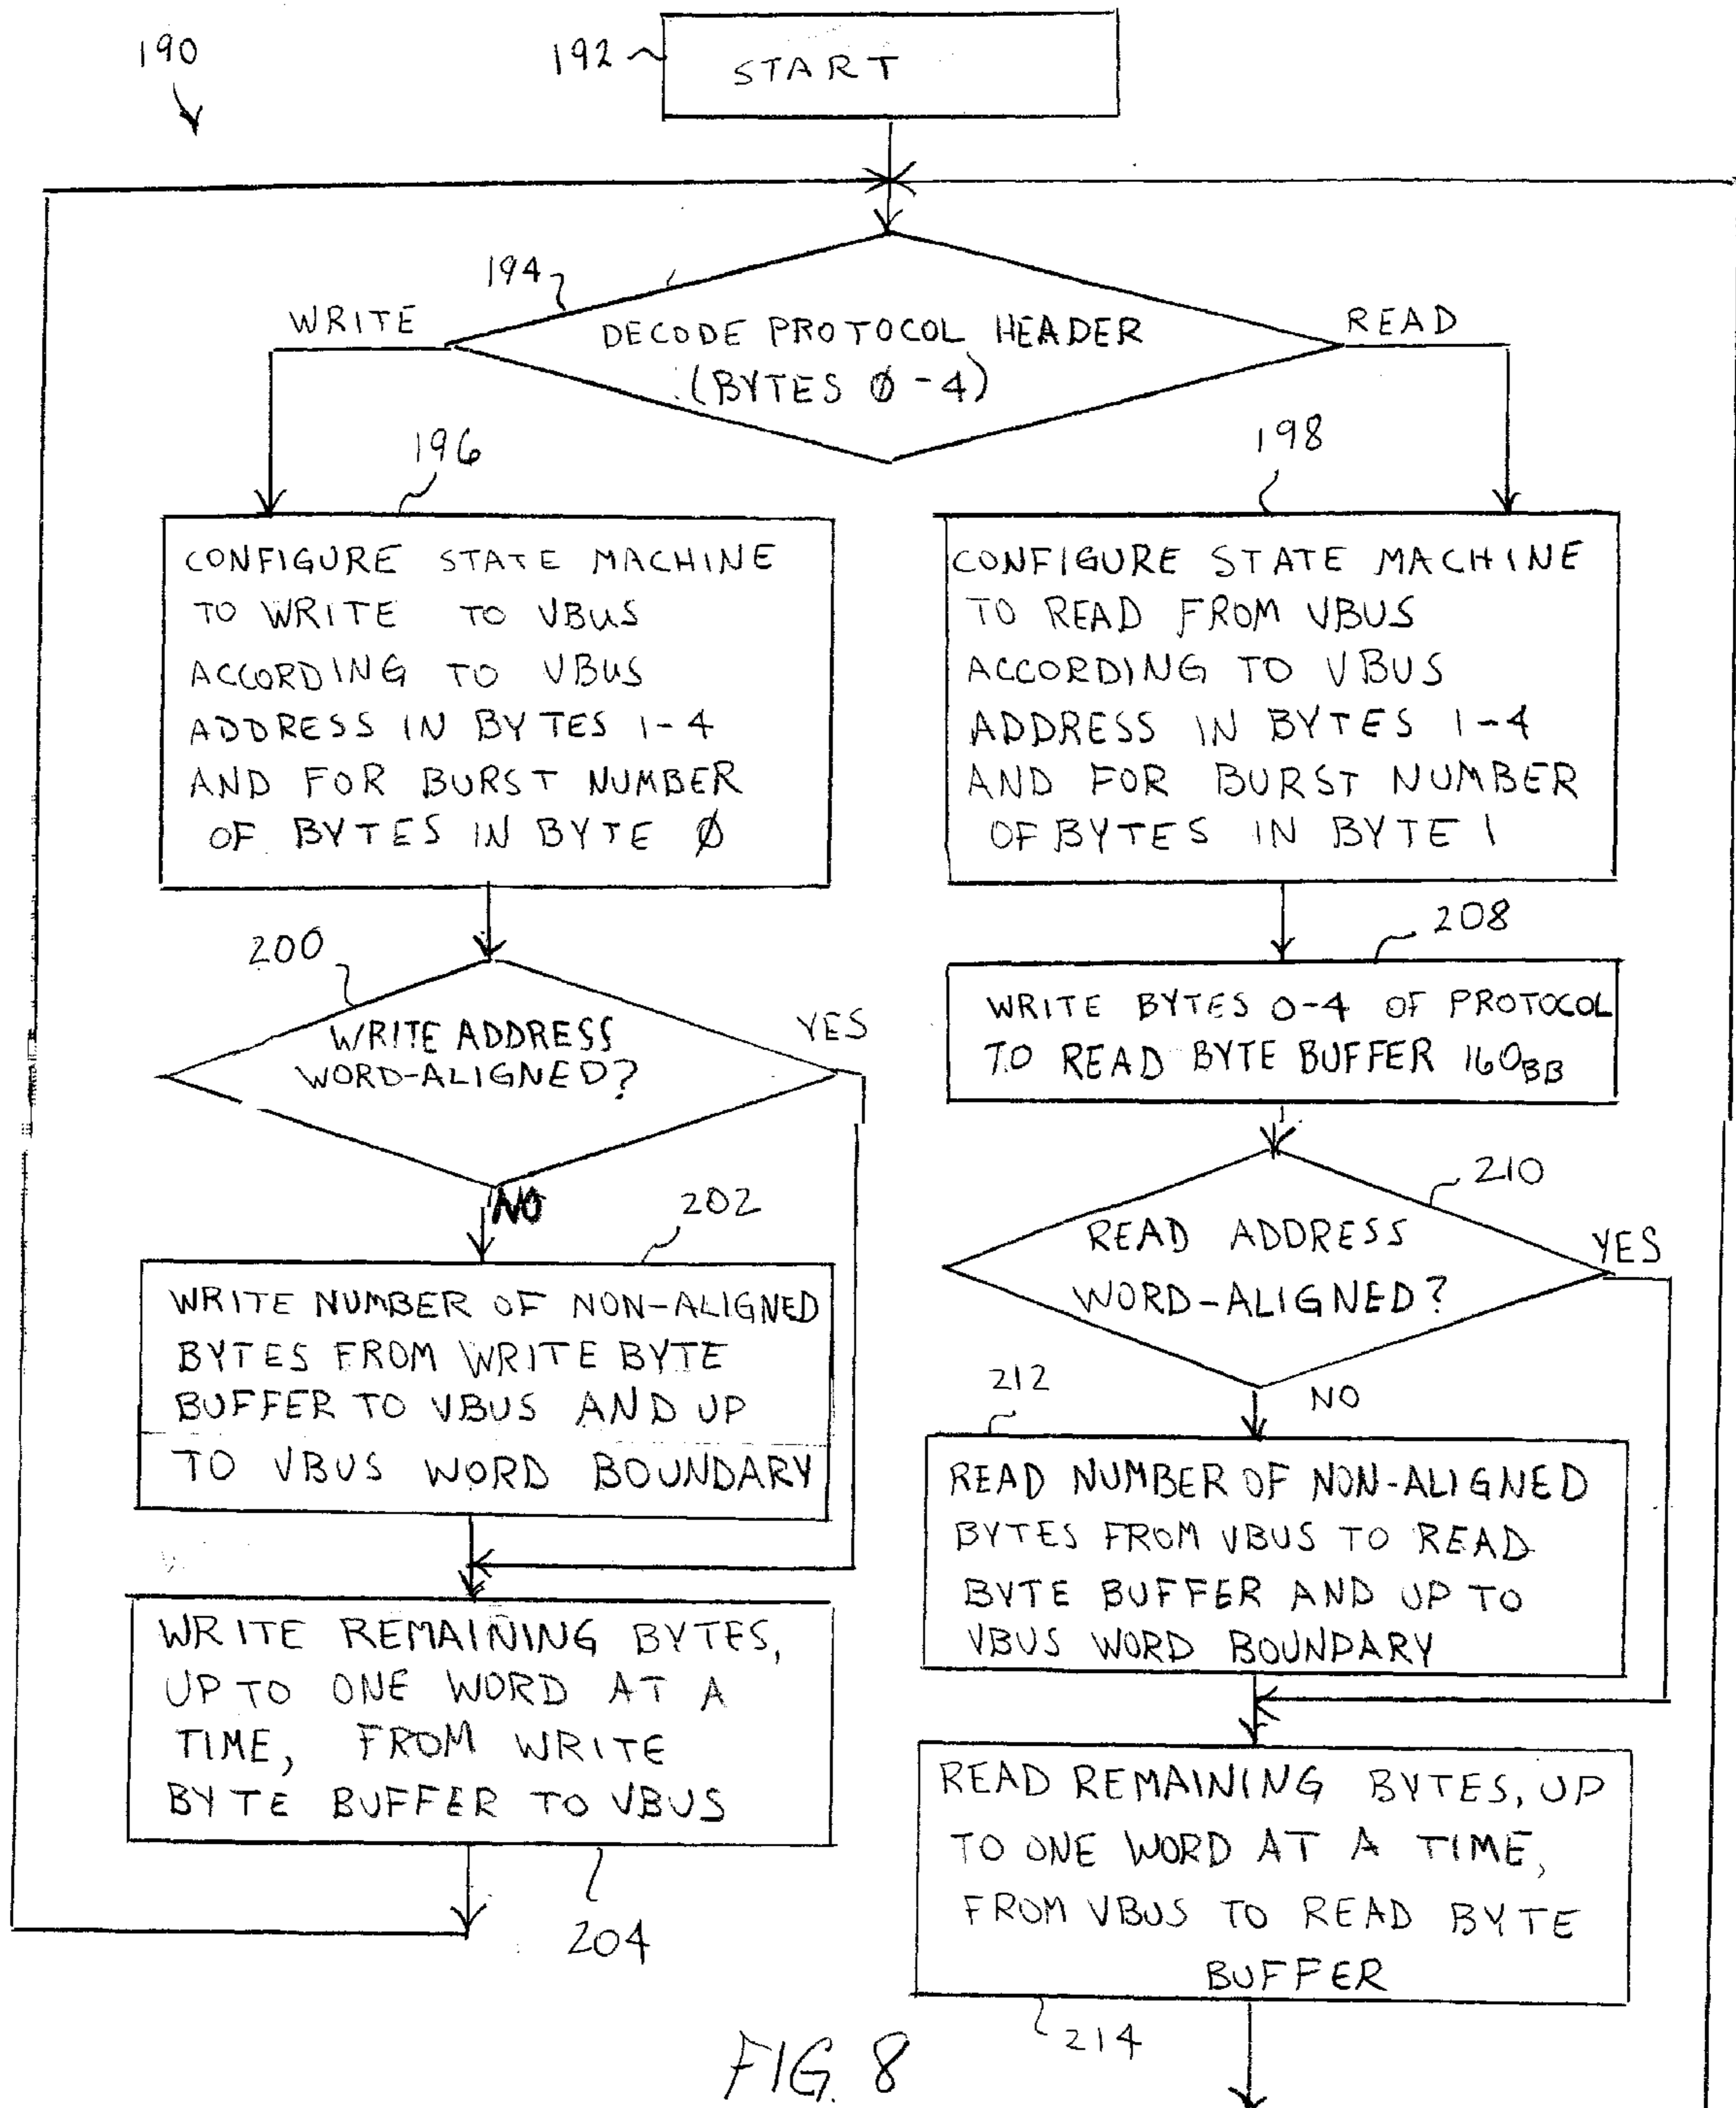 190
192
START
194
WRITE
DECODE PROTOCOL HEADER
(BYTES Ø-4)
READ
196
CONFIGURE STATE MACHINE
TO WRITE TO VBUS
ACCORDING TO VBUS
ADDRESS IN BYTES 1-4
AND FOR BURST NUMBER
OF BYTES IN BYTE Ø
198
CONFIGURE STATE MACHINE
TO READ FROM VBUS
ACCORDING TO VBUS
ADDRESS IN BYTES 1-4
AND FOR BURST NUMBER
OF BYTES IN BYTE 1
200
WRITE ADDRESS
WORD-ALIGNED?
YES
NO
208
WRITE BYTES 0-4 OF PROTOCOL
TO READ BYTE BUFFER 160BB
202
WRITE NUMBER OF NON-ALIGNED
BYTES FROM WRITE BYTE
BUFFER TO VBUS AND UP
TO VBUS WORD BOUNDARY
210
READ ADDRESS
WORD-ALIGNED?
YES
NO
212
READ NUMBER OF NON-ALIGNED
BYTES FROM VBUS TO READ
BYTE BUFFER AND UP TO
VBUS WORD BOUNDARY
WRITE REMAINING BYTES,
UP TO ONE WORD AT A
TIME, FROM WRITE
BYTE BUFFER TO VBUS
204
READ REMAINING BYTES, UP
TO ONE WORD AT A TIME,
FROM VBUS TO READ BYTE
BUFFER
214
FIG. 8